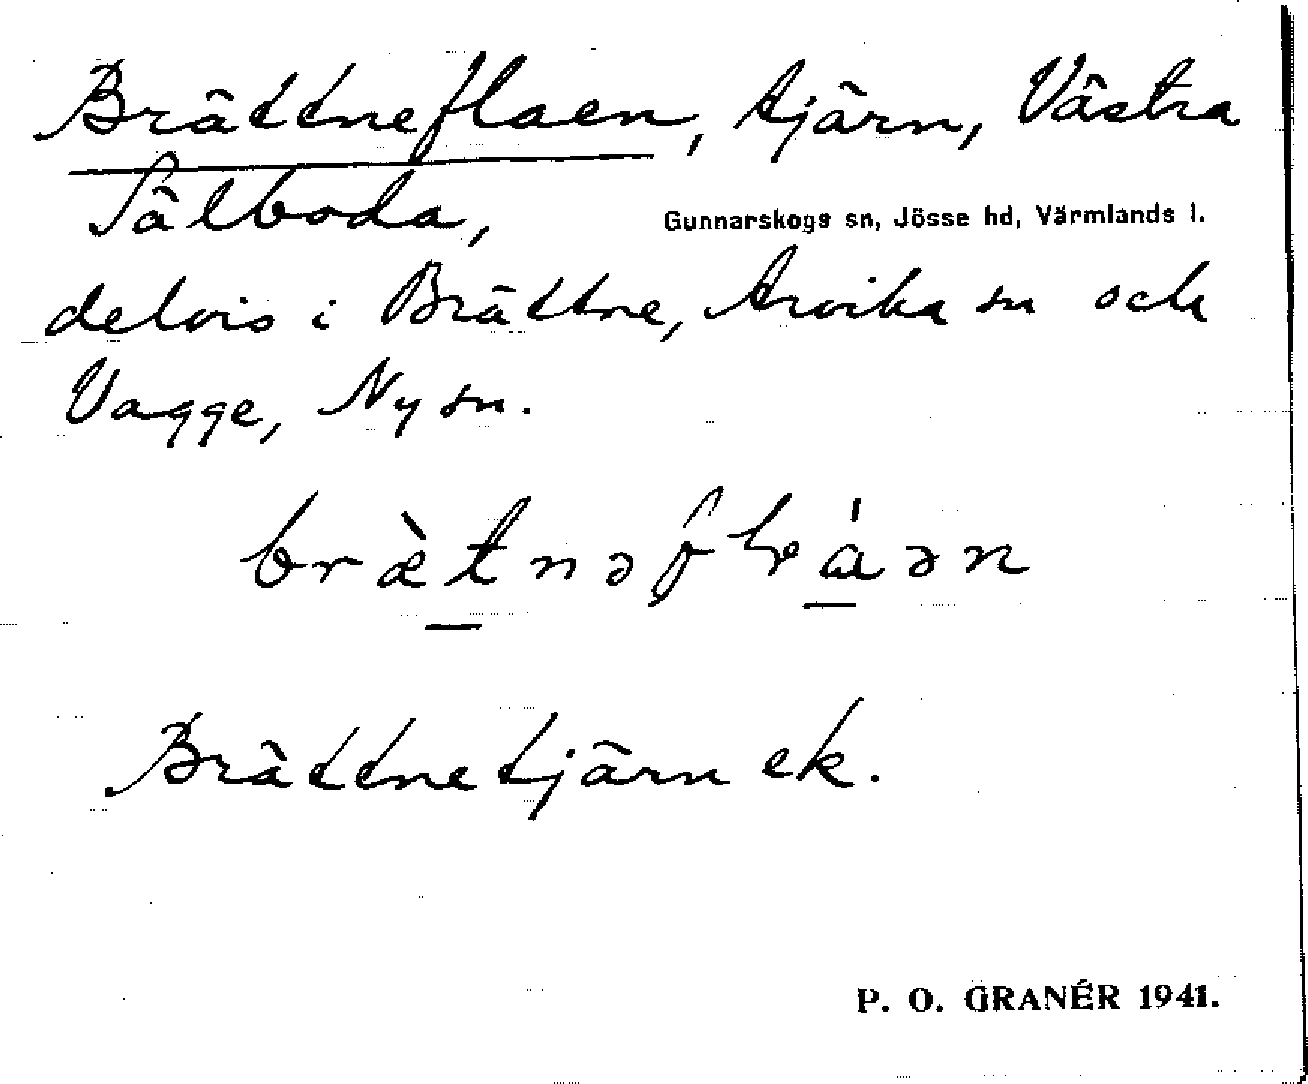 Brättneflaen, tjärn, Västra
Sälboda,
Gunnarskogs sn, Jösse hd, Värmlands l.
delvis i Brättne, Arvika sn och
Vagge, Ny sn.
Brättnetjärn ek.
P. O. GRANÉR 1941.